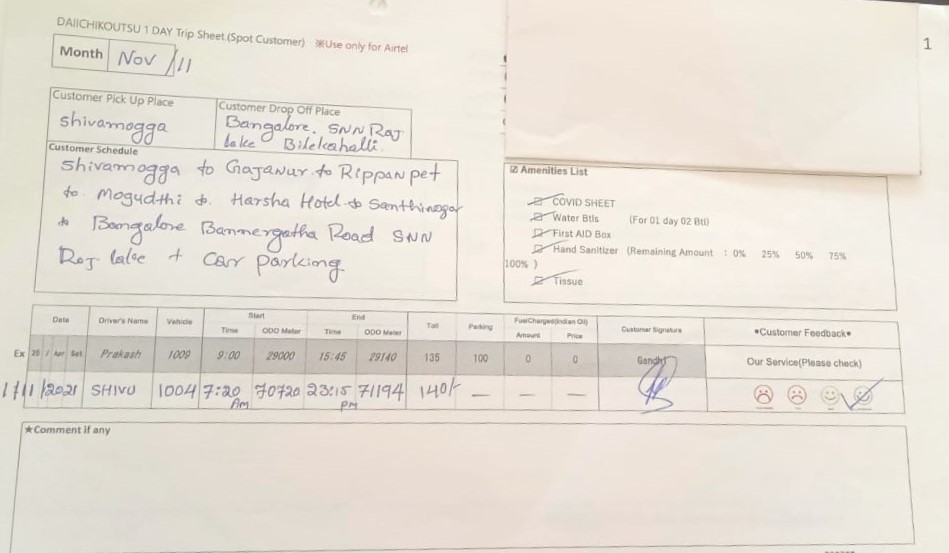 DAIICHIKOUTSU 1 DAY Trip Sheet.(Spot Customer) ※Use only for Airtel
1
Month Nov /11
Customer Pick Up Place
Shivamogga
Customer Drop Off Place
Bangalore. SNN Raj
lake Bilekahalli.
Customer Schedule
Shivamogga to Gajanur to Rippanpet
to Mogudthi to Harsha Hotel to Santhinagar
to Bangalore Bannergatha Road SNN
Raj lake + Car parking
☑ Amenities List
COVID SHEET
Water Btls (For 01 day 02 Btl)
First AID Box
Hand Sanitizer (Remaining Amount : 0% 25% 50% 75%
100% )
Tissue
Date Driver's Name Vehicle Start End Toll Parking FuelCharged(Indian Oil) Customer Signature *Customer Feedback*
Time ODO Meter Time ODO Meter Amount Price
Ex 25 / Apr Sat Prakash 1009 9:00 29000 15:45 29140 135 100 0 0 Gandhi Our Service(Please check)
1/11/2021 SHIVU 1004 7:20 Am 70720 23:15 PM 71194 140/- — — —
★Comment if any